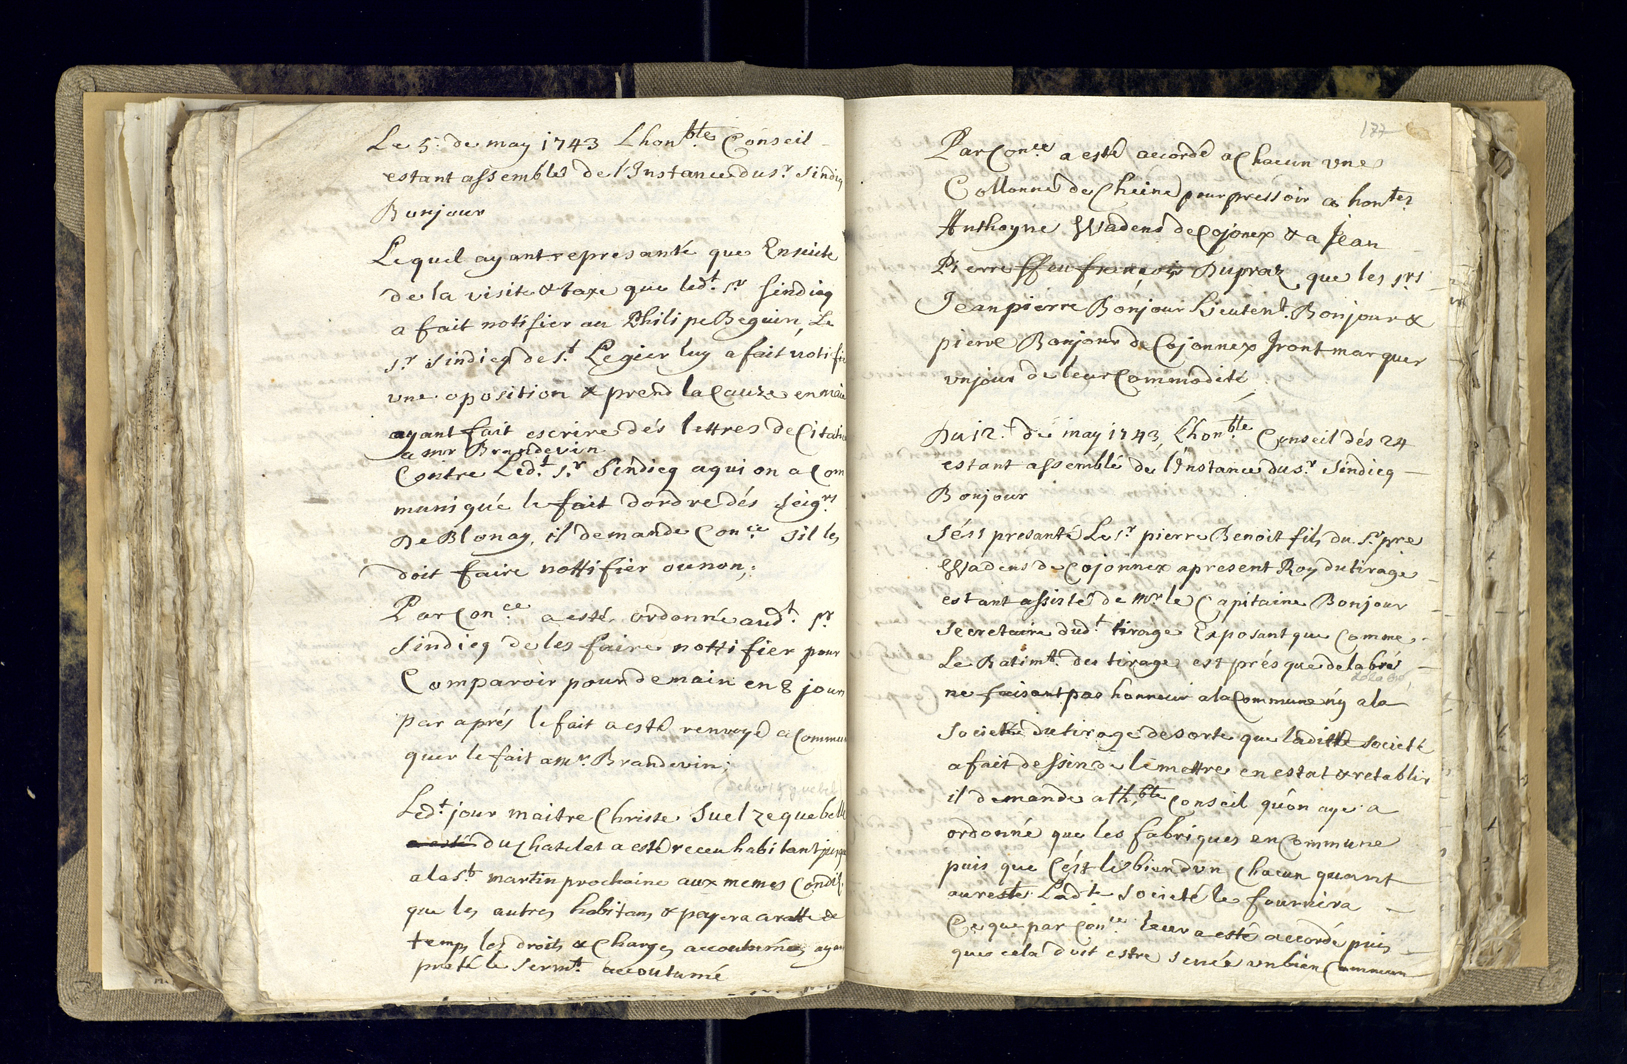 Le 5.e de may 1743 Lhon.ble Conseil
estant assemblé de l'Instance du sr. Sindiq
Bonjour
Lequel ayant represanté que Ensuite
de la visite & taxe que led.t sr sindicq
a fait notifier au Philipe Beguin, Le
sr Sindicq de s.t Legier luy a fait notifi
une oposition & prend la Cauze en main
ayant fait escrire dés lettres de Citati
a mr Brandevin
Contre Led.t sr Sindicq a qui on a Com
muniqué le fait dordre dés seig.rs
De Blonay, il demande Con.ce sil les
doit faire nottifier ou non;
Par Con.ce a esté ordonné aud.t sr
Sindicq de les faire nottifier pour
Comparoir pour demain en 8 jours
par aprés le fait a esté renvoyé a Commu
quer le fait a mr. Brandevin;
Led.t jour maitre Christe Suelzequebelle
a esté du Chatelet a esté receu habitant jusqu
a la s.t martin prochaine aux memes Condit.
que les autres habitans & payera a ratte de
temps les droits & Charges accoutumées ayant
preté le serm.t accoutumé
177
Par Con.ce a esté accordé a Chacun une
Collonne de Cheine pour pressoir a hon.tes
Anthoyne Wadens de Cojonex & a Jean
Pierre ffeu francois Dupraz que les srs
Jean pierre Bonjour Lieuten.t Bonjour &
pierre Bonjour de Cojonnex Iront marquer
un jour de leur Commodité;
Du 12.e de may 1743, Lhon.ble Conseil dés 24
estant assemblé de l'Instance du sr. Sindicq
Bonjour
S'est presanté Le sr. pierre Benoit fils du Sr. pre
Wadens de Cojonnex apresent Roy du tirage
estant assisté de Mr. le Capitaine Bonjour
Secretaire dud.t tirage Exposant que Comme
Le Batim.t des tirage est présque delabré
delabré
ne faisant pas honneur a la Commune n'y a la
Societé du tirage de sorte que laditte societé
a fait dessin de le mettre en estat & retablir
il demande a lh.ble Conseil qu'on aye a
ordonné que les fabriques en Commune
puis que C'est le bien d'un Chacun quant
au reste Lad.te Societé le fournira
Ce que par Con.ce leur a esté accordé puis
que cela doit estre un bien Commun